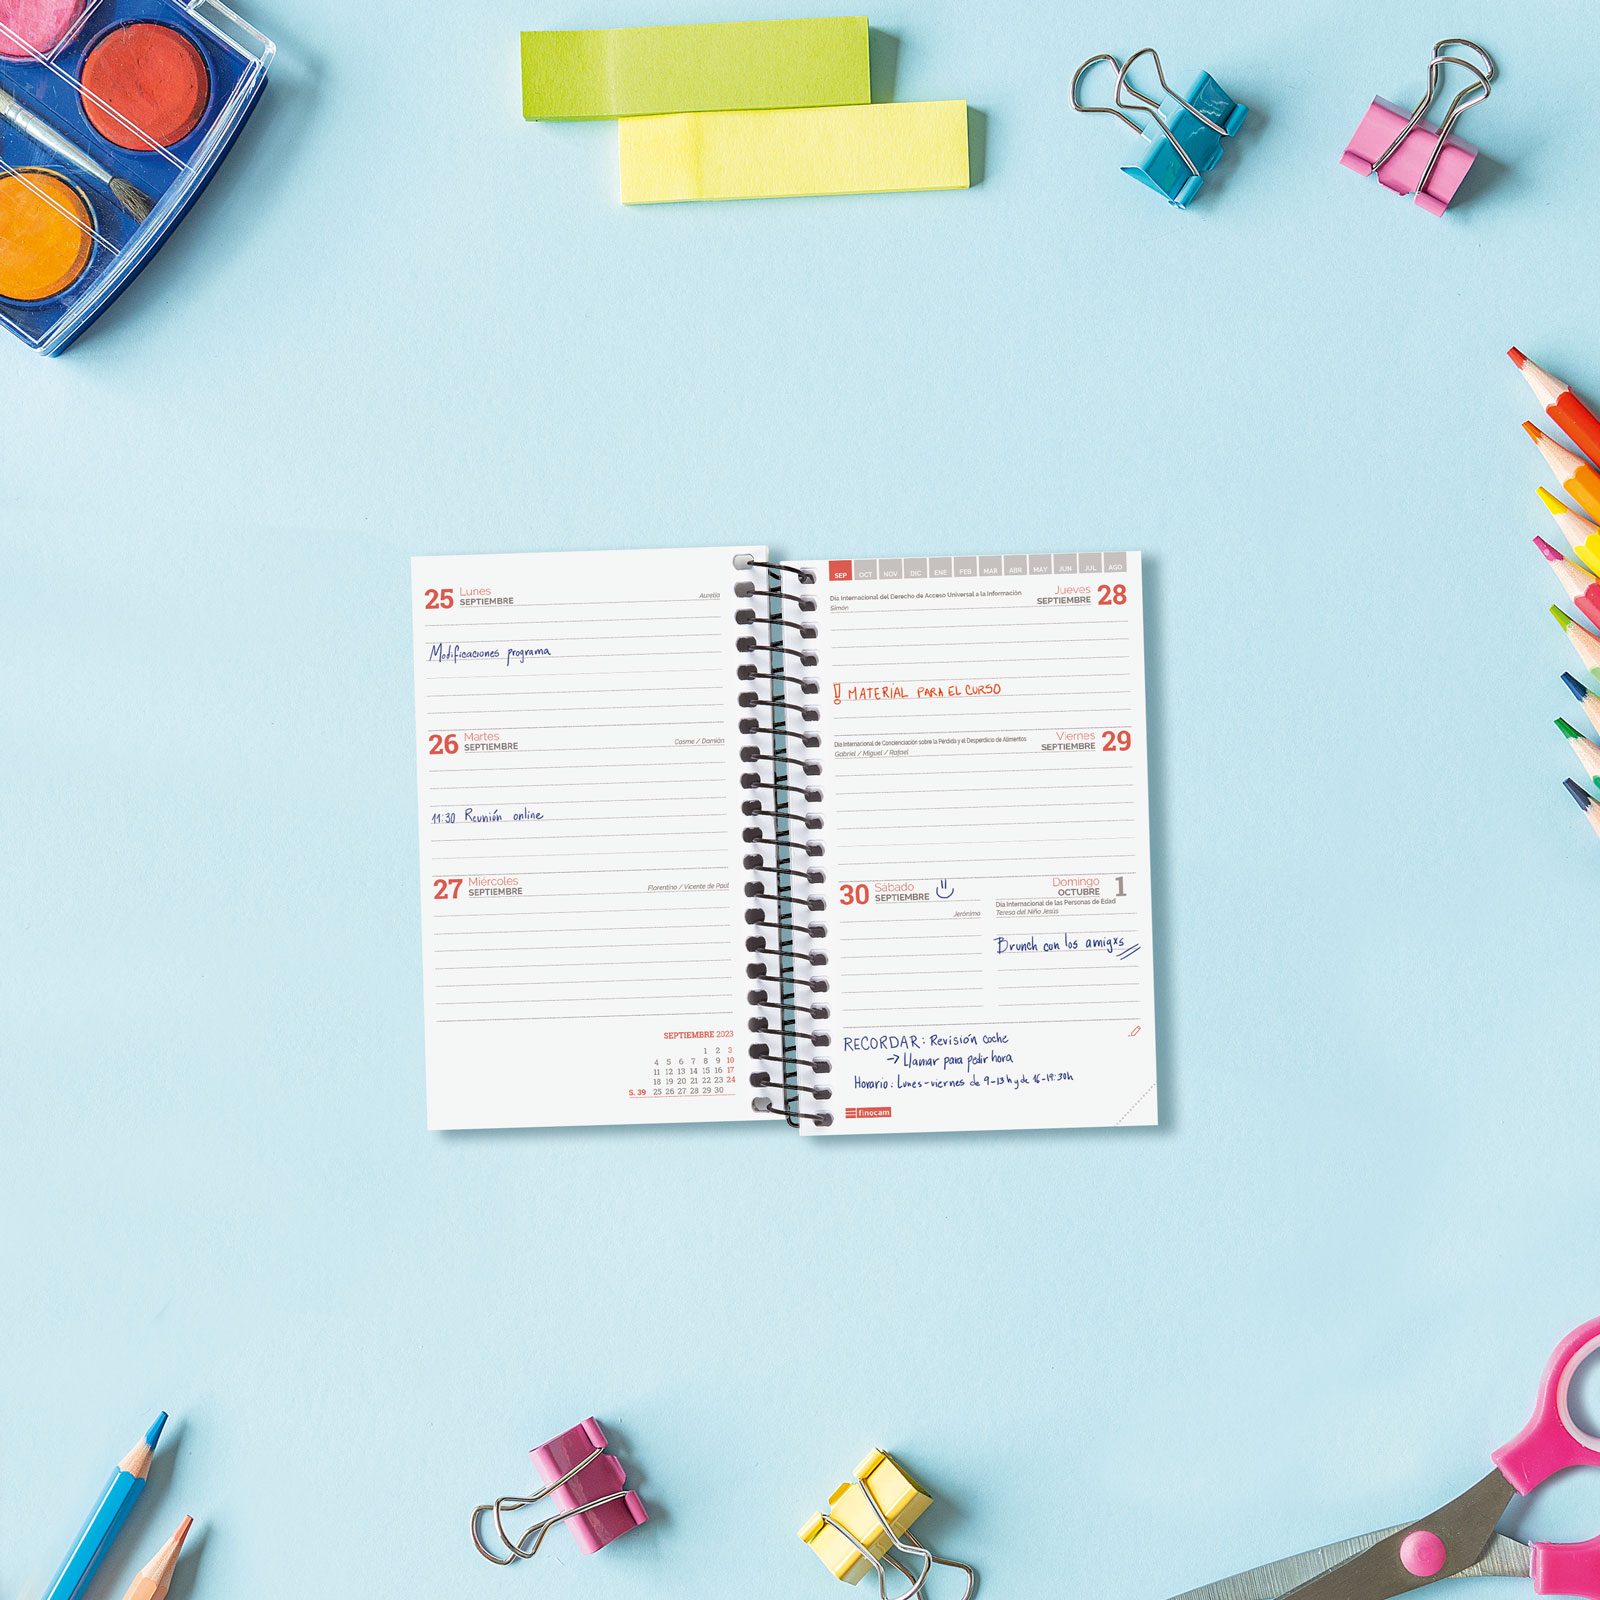 25 Lunes
SEPTIEMBRE
Aurelia
Modificaciones programa
26 Martes
SEPTIEMBRE
Cosme / Damián
11:30 Reunión online
27 Miércoles
SEPTIEMBRE
Florentino / Vicente de Paúl
SEPTIEMBRE 2023
1 2 3
4 5 6 7 8 9 10
11 12 13 14 15 16 17
18 19 20 21 22 23 24
S. 39 25 26 27 28 29 30
SEP OCT NOV DIC ENE FEB MAR ABR MAY JUN JUL AGO
Día Internacional del Derecho de Acceso Universal a la Información
Simón
Jueves 28
SEPTIEMBRE
! MATERIAL PARA EL CURSO
Día Internacional de Concienciación sobre la Pérdida y el Desperdicio de Alimentos
Gabriel / Miguel / Rafael
Viernes 29
SEPTIEMBRE
30 Sábado
SEPTIEMBRE
Jerónimo
Domingo 1
OCTUBRE
Día Internacional de las Personas de Edad
Teresa del Niño Jesús
Brunch con los amigxs
RECORDAR: Revisión coche
→ Llamar para pedir hora
Horario: Lunes-viernes de 9-13h y de 16-19:30h
finocam